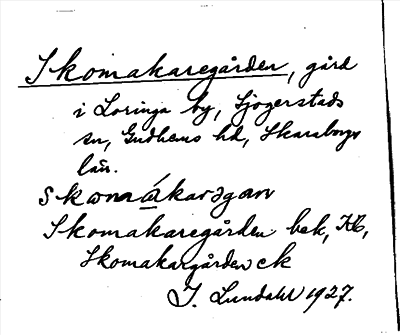 Skomakaregården, gård
i Loringa by, Sjogerstads
sn, Gudhems hd, Skaraborgs
län.
skomákaregan
Skomakaregården bek,
Skomakargården ck
I. Lundahl 1927.